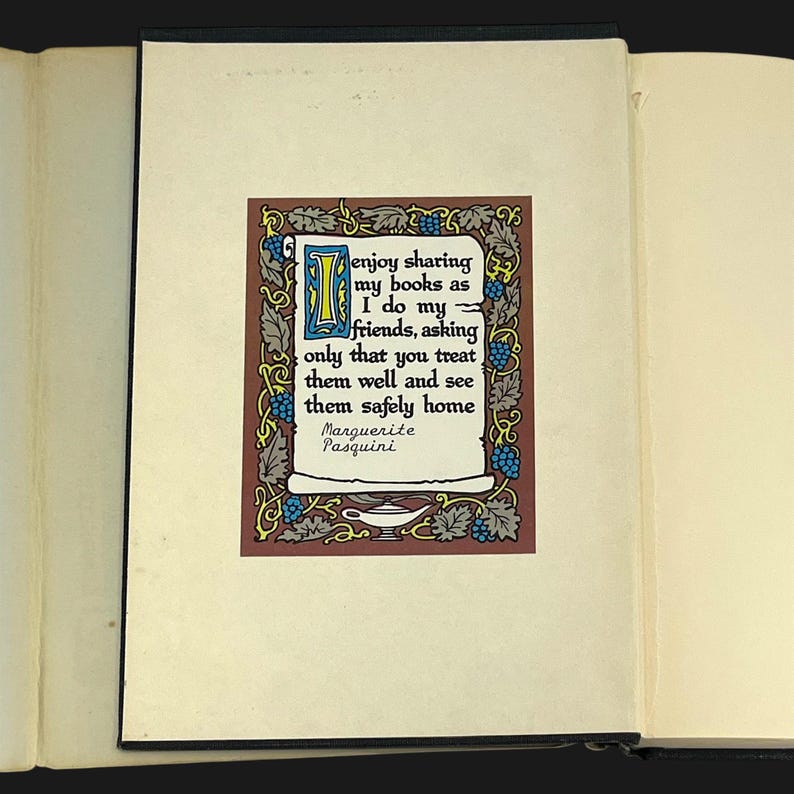 I enjoy sharing
my books as
I do my
friends, asking
only that you treat
them well and see
them safely home
Marguerite
Pasquini